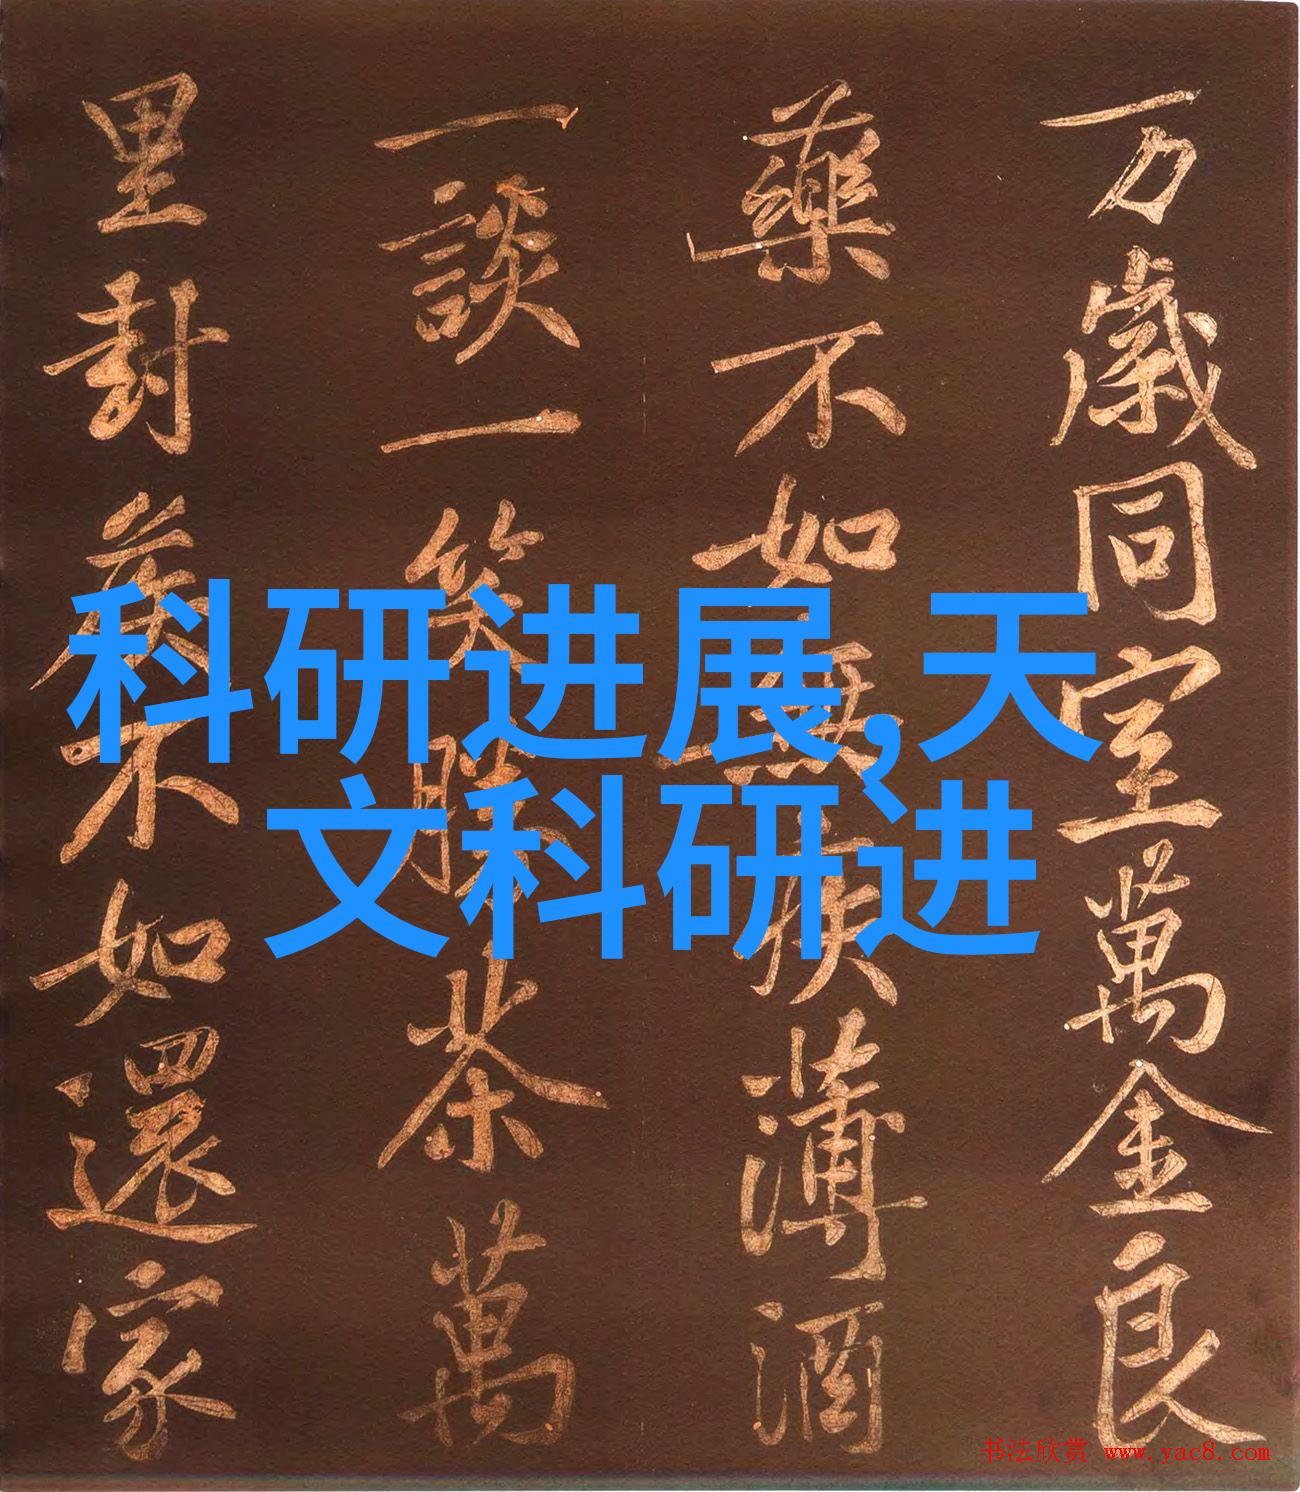 科研进展,天
文科研进
万歲同室萬金良
藥不如無疾薄酒
一談一笑勝茶萬
里封矦不如還家
书法欣赏 www.yac8.com